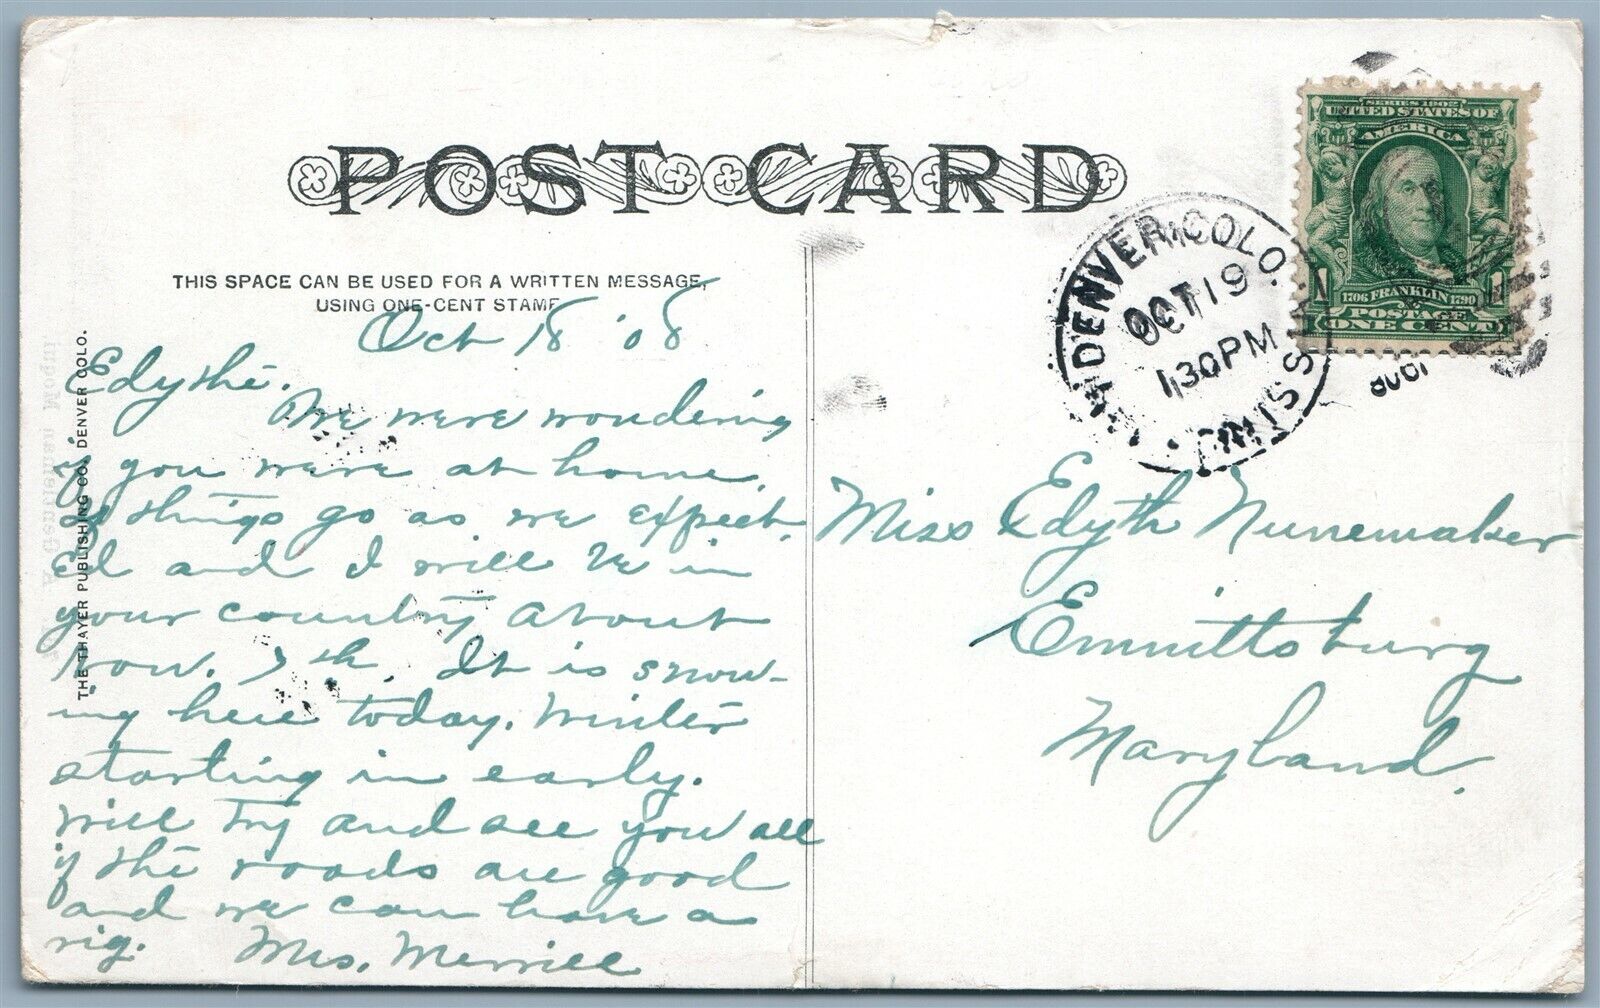 POST CARD
THIS SPACE CAN BE USED FOR A WRITTEN MESSAGE,
USING ONE-CENT STAMP
THE THAYER PUBLISHING CO. DENVER COLO.
Oct 18 '08
Edythe.
We were wondering
if you were at home.
If things go as we expect.
Ed and I will be in
your country about
Nov. 7th. It is snow-
ing here today. Winter
starting in early.
Will try and see you all
if the roads are good
and we can have a
rig. Mrs. Merrill
DENVER, COLO.
OCT 19
1 30 PM
1908
SERIES 1902
UNITED STATES OF
AMERICA
1 1
1706 FRANKLIN 1790
POSTAGE
ONE CENT
Miss Edyth Nunemaker
Emmittsburg
Maryland.